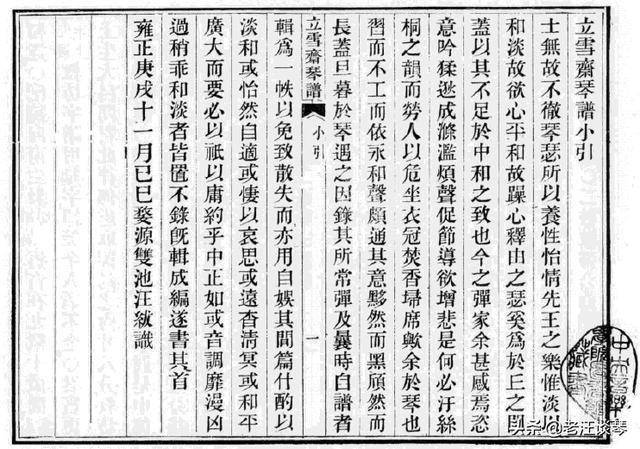 立雪齋琴譜小引
士無故不徹琴瑟所以養性怡情先王之樂惟淡以
和淡故欲心平和故躁心釋由之瑟奚爲於丘之門
蓋以其不足於中和之致也今之彈家余甚慼焉恣
意吟猱遂成滌濫煩聲促節導欲增悲是何必汙絲
桐之韻而勞人以危坐衣冠焚香埽席歟余於琴也
習而不工而依永和聲頗通其意黟然而黑頎然而
長蓋旦暮於琴遇之因錄其所常彈及曩時自譜者
立雪齋琴譜 小引 一
輯爲一帙以免致散失而亦用自娛其間篇什酌以
淡和或怡然自適或悽以哀思或遠杳淸冥或和平
廣大而要必以祇以庸約乎中正如或音調靡漫凶
過稍乖和淡者皆置不錄旣輯成編遂書其首
雍正庚戌十一月己巳婺源雙池汪紱識
头条 @老汪谈琴